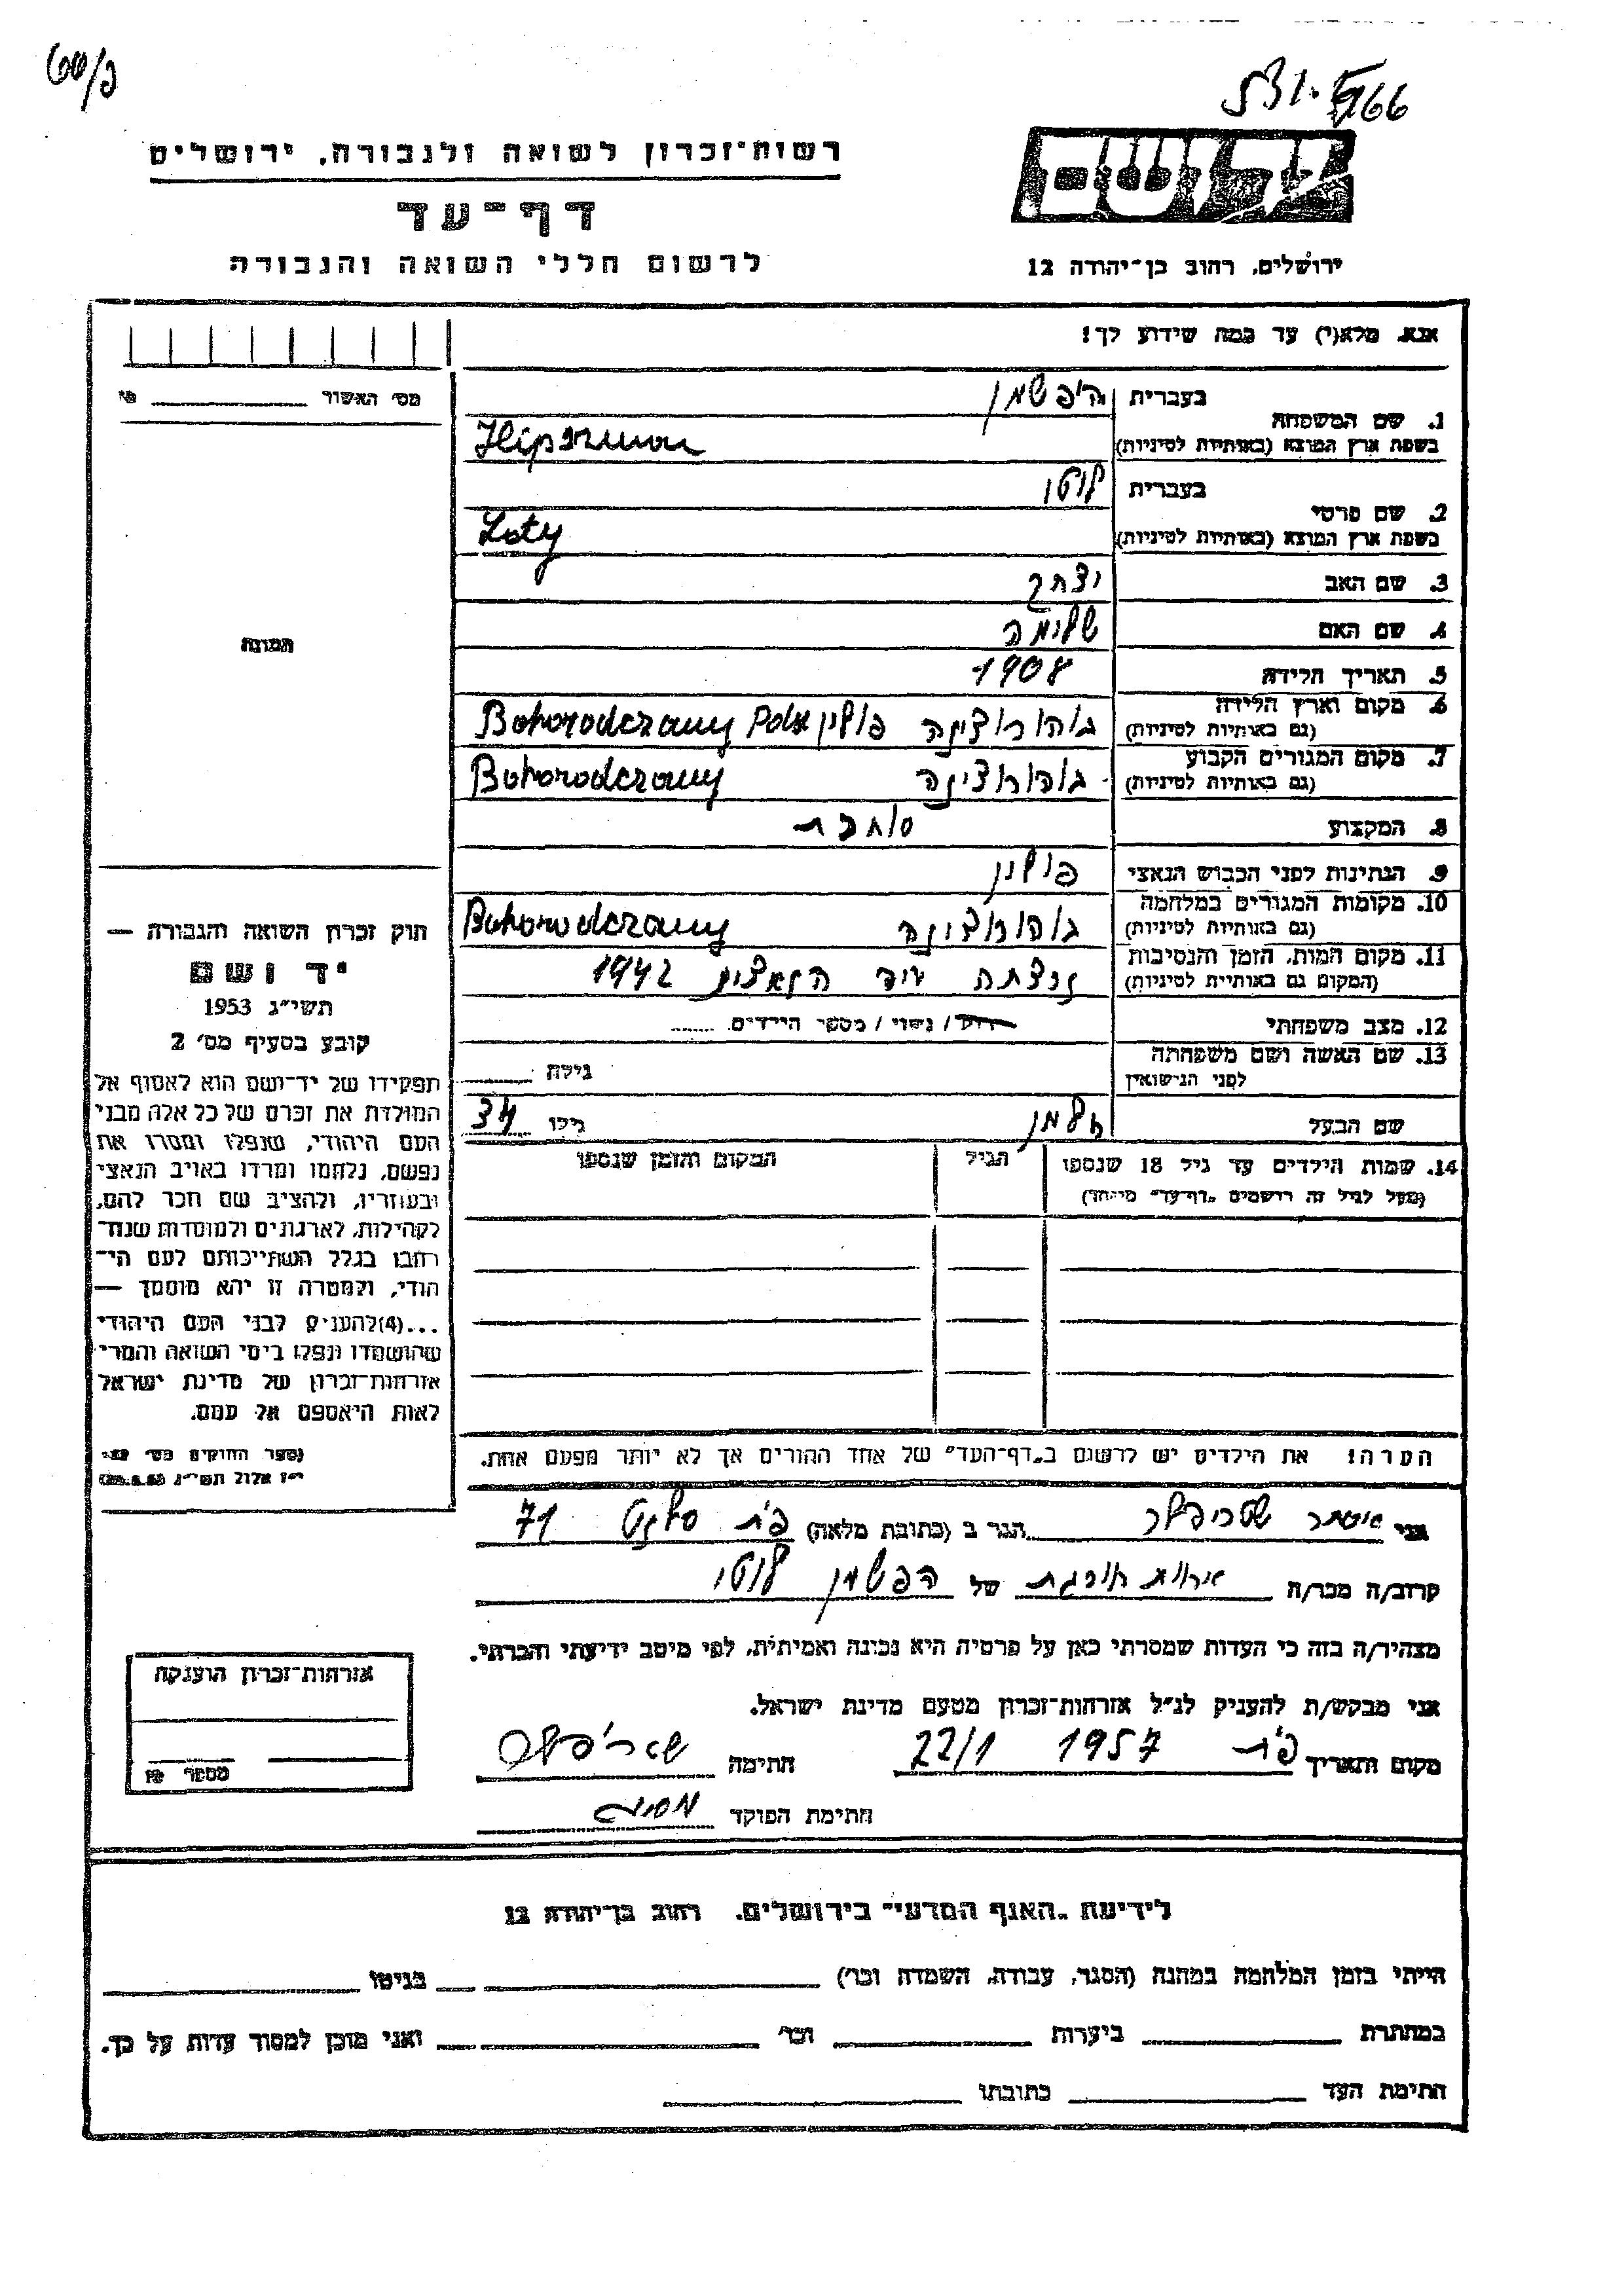 רשות־זכרון לשואה ולגבורה, ירושלים
דף־עד
לרשום חללי השואה והגבורה
ירושלים, רחוב בן־יהודה 12
אנא, מלא(י) עד כמה שידוע לך!
מס׳ האשור
1. שם המשפחה בעברית היפשמן
בשפת ארץ המוצא (באותיות לטיניות) Hipszman
2. שם פרטי בעברית לוטי
בשפת ארץ המוצא (באותיות לטיניות) Loty
3. שם האב יצחק
4. שם האם שלומה
5. תאריך הלידה 1908
6. מקום וארץ הלידה
(גם באותיות לטיניות) פולין Bohorodczamy
7. מקום המגורים הקבוע
(גם באותיות לטיניות) Bohorodczamy
8. המקצוע סוחרת
9. הנתינות לפני הכבוש הנאצי פולין
10. מקומות המגורים במלחמה
(גם באותיות לטיניות) Bohorodczamy
11. מקום המות, הזמן והנסיבות
(המקום גם באותיות לטיניות) נרצחה הנאצים 1942
12. מצב משפחתי רווק / נשוי / מספר הילדים
13. שם האשה ושם משפחתה
לפני הנישואין גילה
שם הבעל זלמן גילו 34
14. שמות הילדים עד גיל 18 שנספו הגיל המקום והזמן שנספו
(מעל לגיל זה רושמים „דף־עד” מיוחד)
הערה! את הילדים יש לרשום ב„דף־העד” של אחד ההורים אך לא יותר מפעם אחת.
התמונה
חוק זכרון השואה והגבורה —
יד ושם
תשי״ג 1953
קובע בסעיף מס׳ 2
תפקידו של יד־ושם הוא לאסוף אל
המולדת את זכרם של כל אלה מבני
העם היהודי, שנפלו ומסרו את
נפשם, נלחמו ומרדו באויב הנאצי
ובעוזריו, ולהציב שם וזכר להם,
לקהילות, לארגונים ולמוסדות שנח־
רבו בגלל השתייכותם לעם הי־
הודי, ולמטרה זו יהא מוסמך —
...(4)להעניק לבני העם היהודי
שהושמדו ונפלו בימי השואה והמרי
אזרחות־זכרון של מדינת ישראל
לאות היאספם אל עמם.
י״ז אלול תשי״ג
אני אסתר הגר ב (כתובת מלאה) 71
קרוב/ה מכר/ה של הפשמן לוטי
מצהיר/ה בזה כי העדות שמסרתי כאן על פרטיה היא נכונה ואמיתית, לפי מיטב ידיעתי והכרתי.
אני מבקש/ת להעניק לנ״ל אזרחות־זכרון מטעם מדינת ישראל.
מקום ותאריך 1957 22/1 חתימה
חתימת הפוקד
אזרחות־זכרון הוענקה
מספר
לידיעת „האגף המדעי” בירושלים, רחוב בן־יהודה 12
הייתי בזמן המלחמה במחנה (הסגר, עבודה, השמדה וכו׳) בגיטו
במחתרת ביערות וכו׳ ואני מוכן למסור עדות על כך.
חתימת העד כתובתו